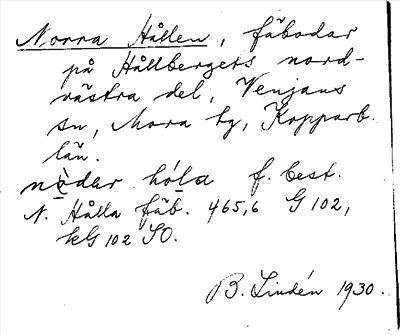 Norra Hållen, fäbodar
på Hållbergets nord-
västra del, Venjans
sn, Mora tg, Kopparb.
län.
nòdar hóla f. best.
N. Hålla fäb. 465,6 G 102,
kG 102 SO.
B. Lindén 1930.